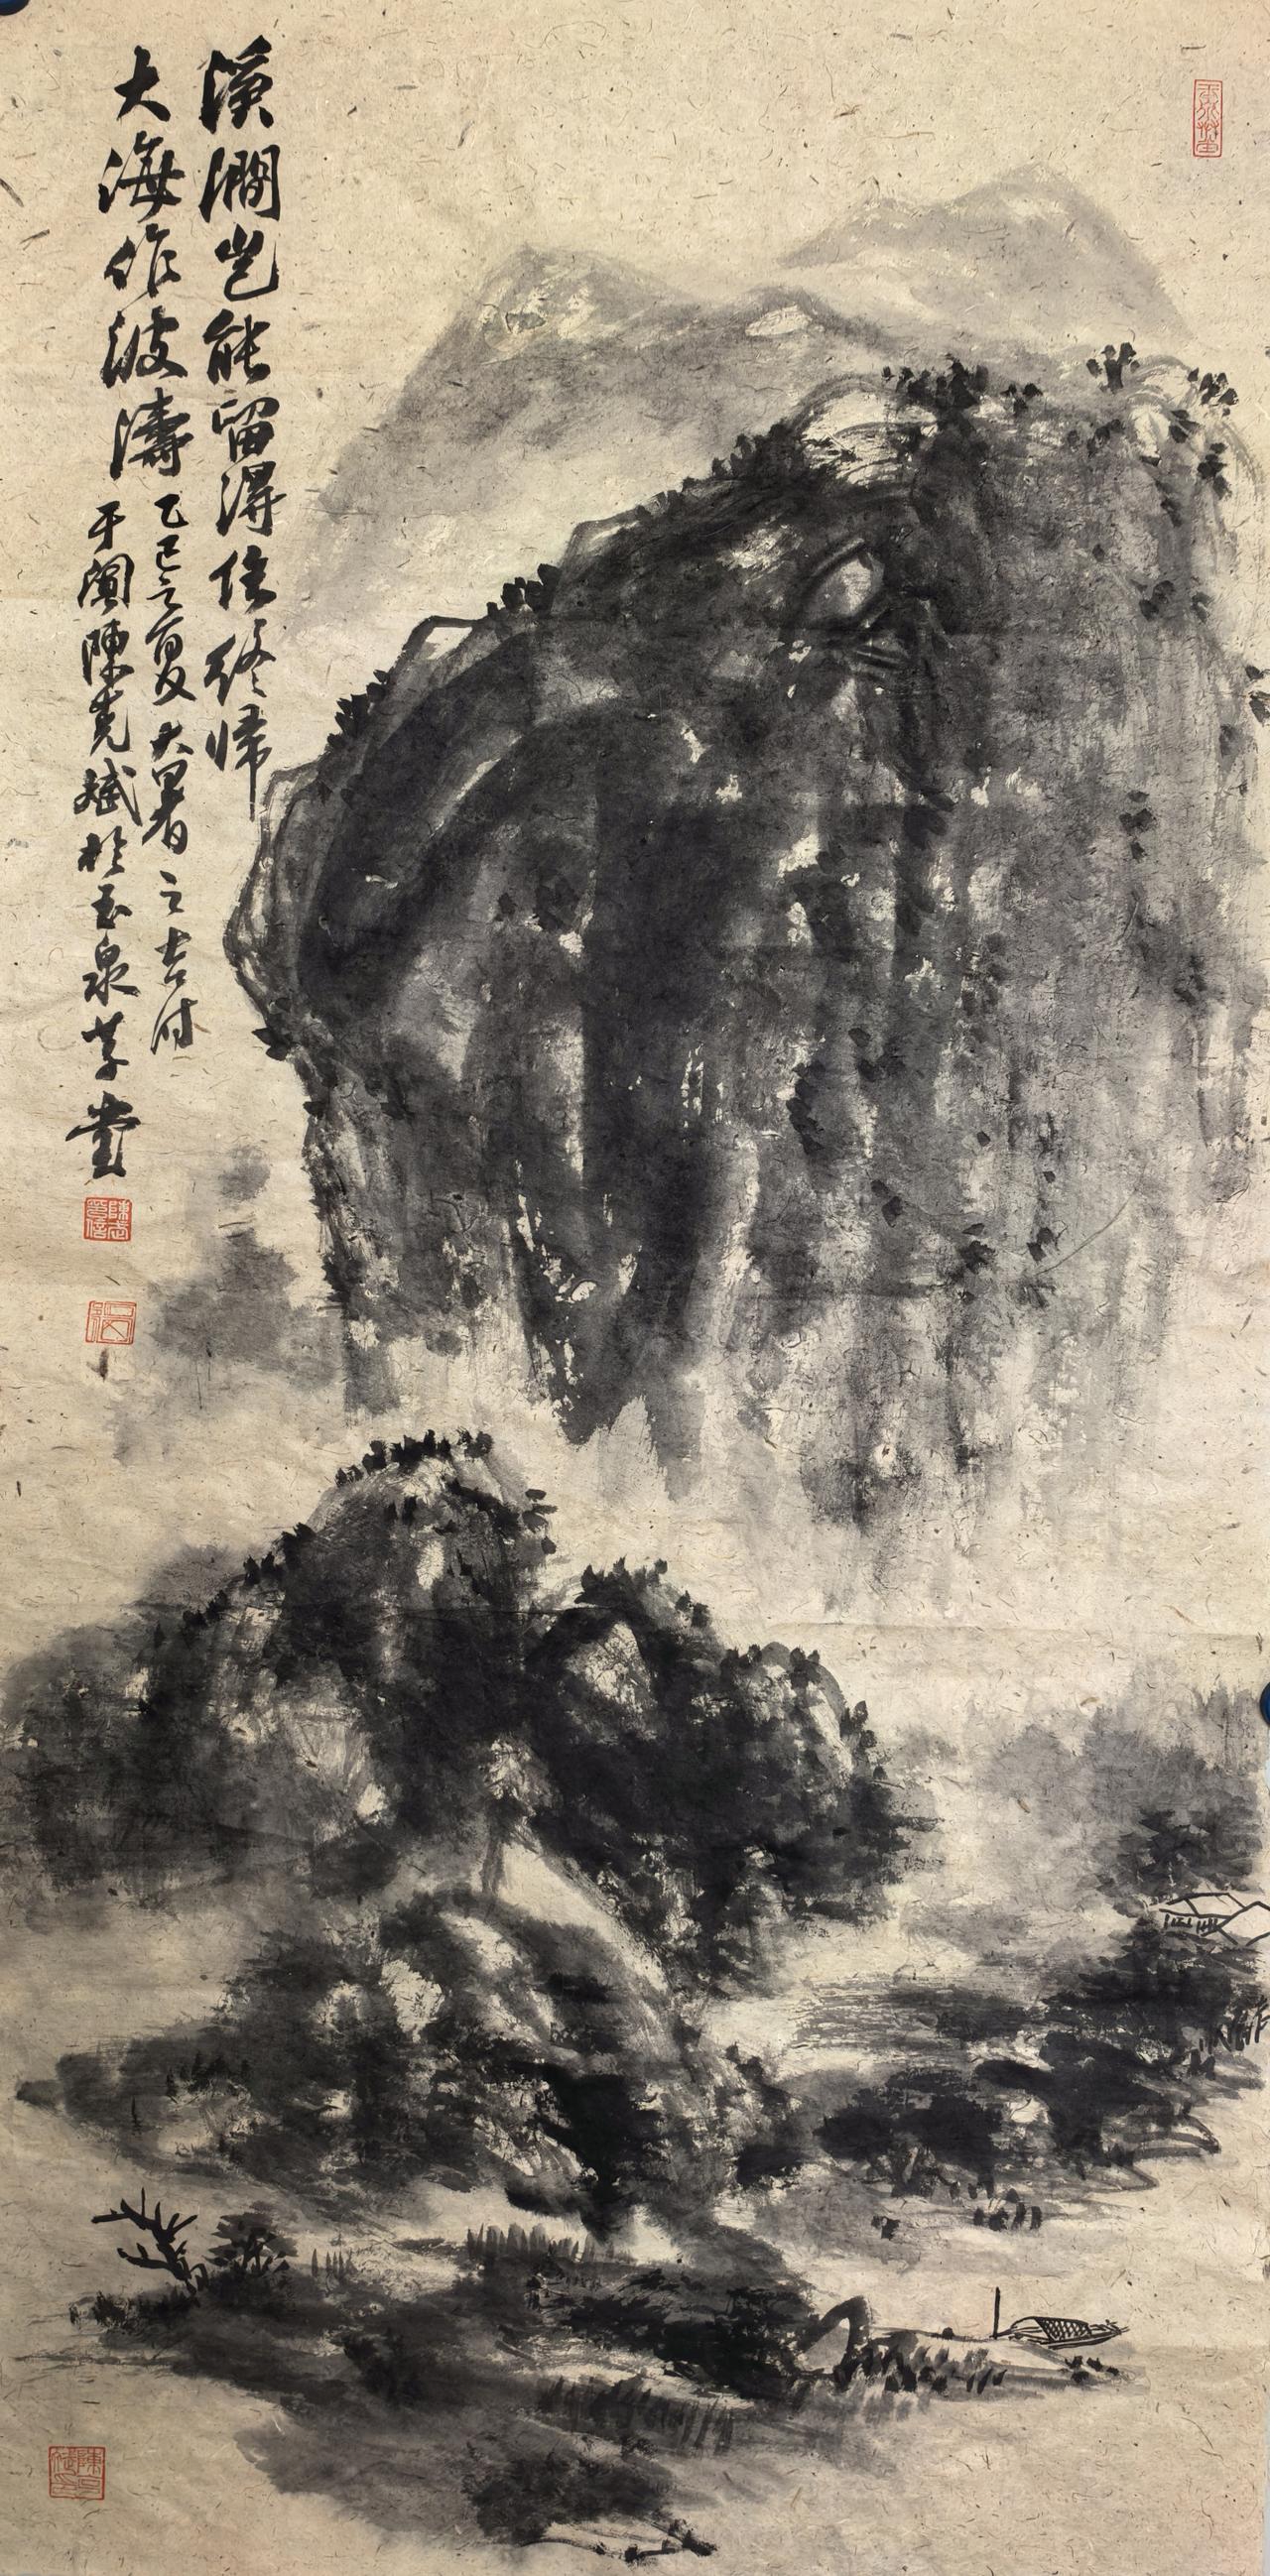 溪澗豈能留得住終歸
大海作波濤
乙巳之夏大暑之吉时
于闐陳克斌於玉泉草堂